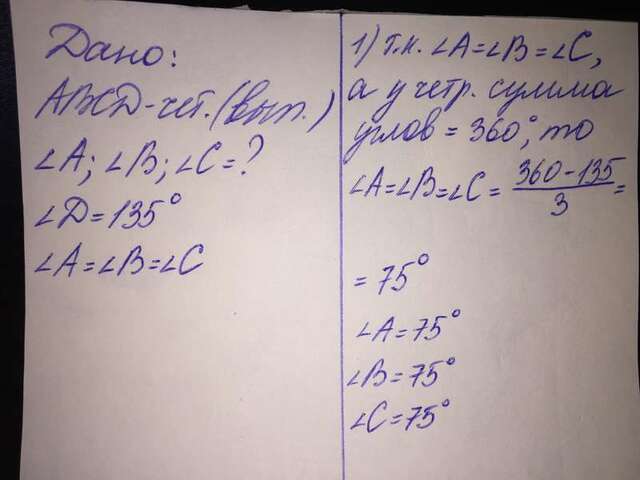 Дано:
ABCD-чет.(вып.)
∠A; ∠B; ∠C=?
∠D=135°
∠A=∠B=∠C
1) т.к. ∠A=∠B=∠C,
а у четр. сумма
углов = 360°, то
∠A=∠B=∠C= 360-135/3 =
= 75°
∠A=75°
∠B=75°
∠C=75°